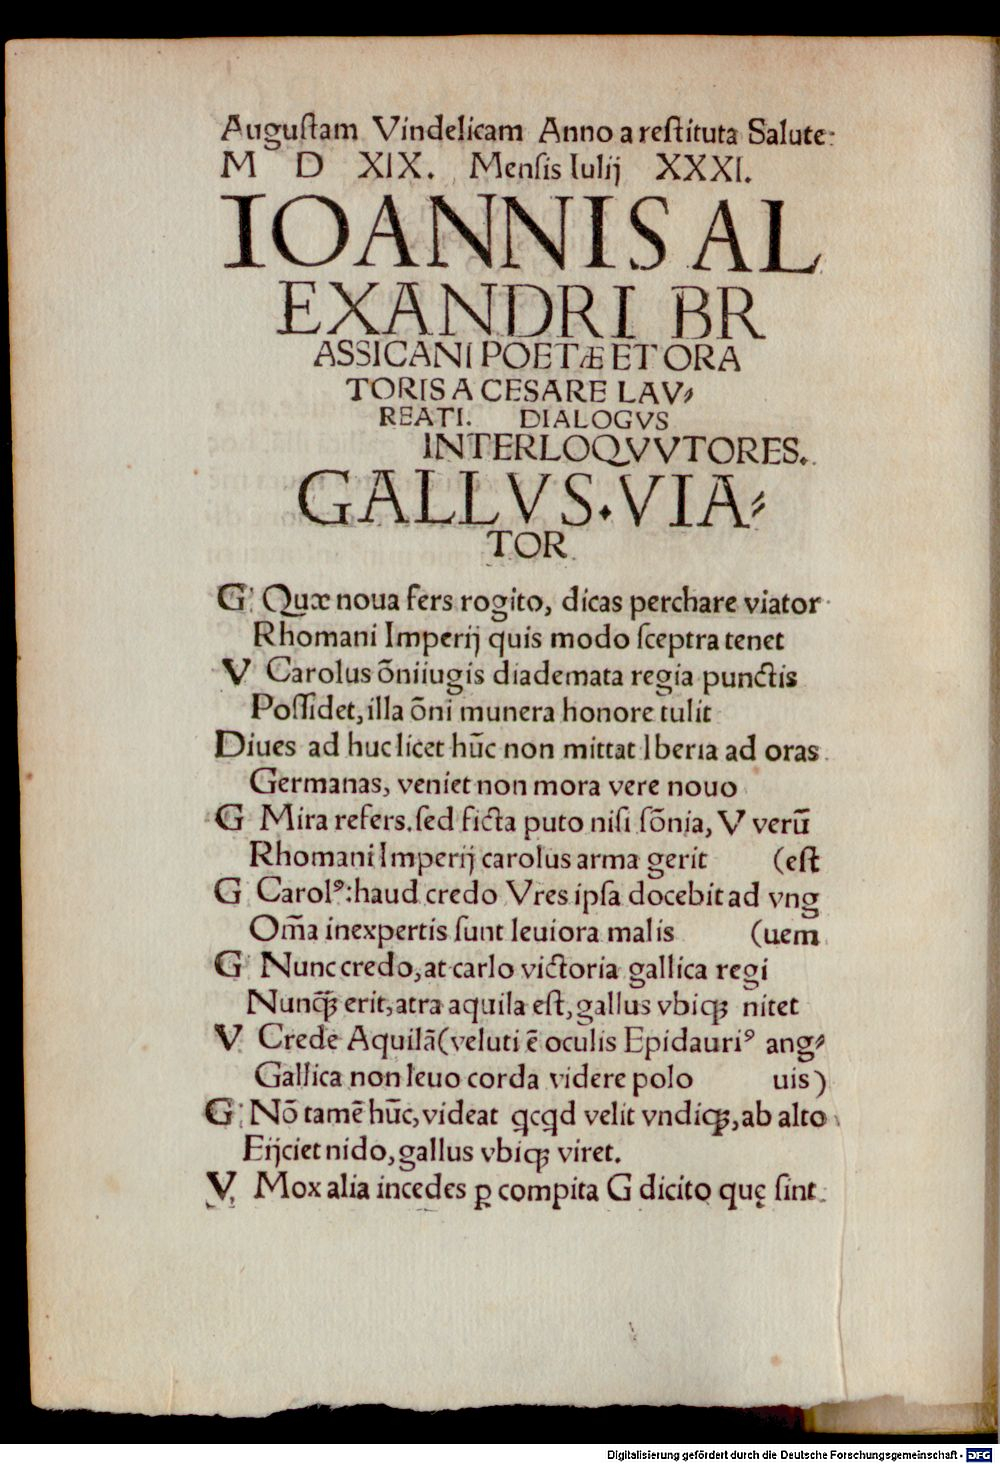 Auguſtam Vindelicam Anno a reſtituta Salute:
M D XIX. Menſis Iulij XXXI.
IOANNIS AL
EXANDRI BR
ASSICANI POETÆ ET ORA
TORIS A CESARE LAV⸗
REATI. DIALOGVS
INTERLOQVVTORES.
GALLVS. VIA⸗
TOR
G Quæ noua fers rogito, dicas perchare viator
Rhomani Imperij quis modo ſceptra tenet
V Carolus õniiugis diademata regia punctis
Poſſidet, illa õni munera honore tulit
Diues ad huc licet hũc non mittat Iberia ad oras
Germanas, veniet non mora vere nouo
G Mira refers. ſed ficta puto niſi ſõnia, V verũ
Rhomani Imperij carolus arma gerit (eſt
G Carolꝰ: haud credo V res ipſa docebit ad vng
Om̃a inexpertis ſunt leuiora malis (uem
G Nunc credo, at carlo victoria gallica regi
Nunꝗ̃ erit, atra aquila eſt, gallus vbiqꝫ nitet
V Crede Aquilã (veluti ẽ oculis Epidauriꝰ ang⸗
Gallica non leuo corda videre polo uis)
G Nõ tamẽ hũc, videat ꝗcꝗd velit vndiqꝫ, ab alto
Eijciet nido, gallus vbiqꝫ viret.
V Mox alia incedes ꝑ compita G dicito quę ſint
Digitalisierung gefördert durch die Deutsche Forschungsgemeinschaft - DFG